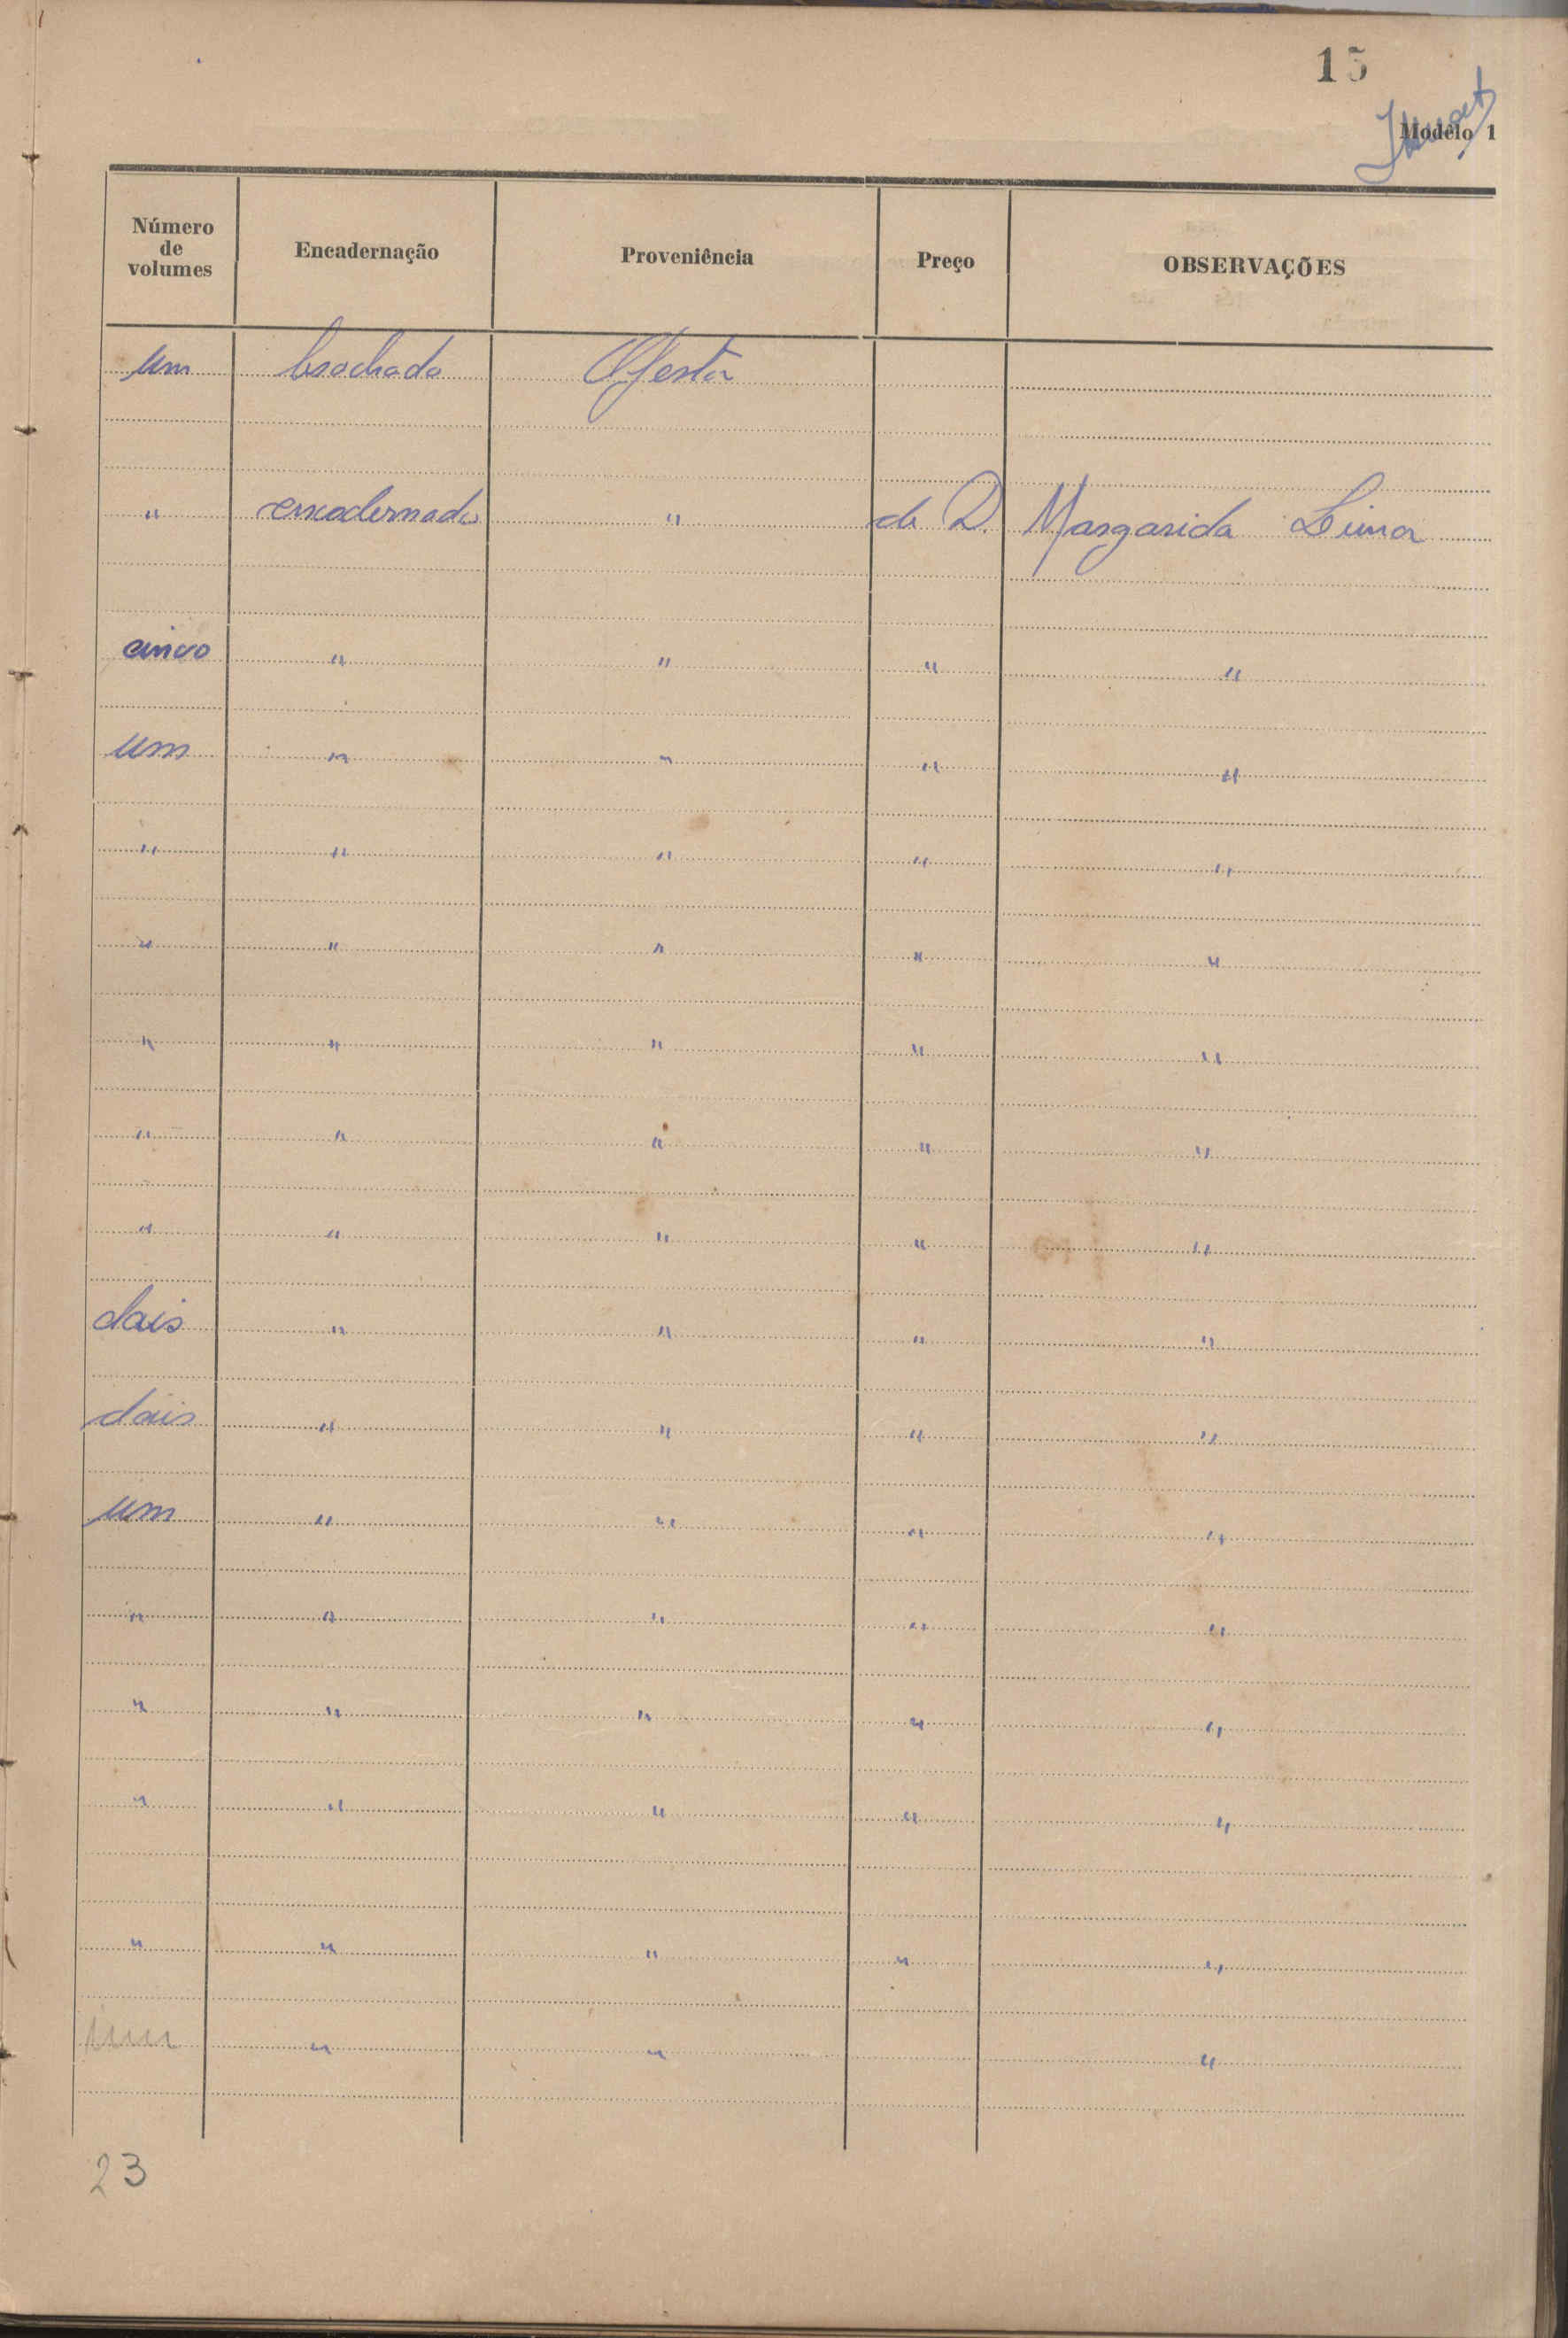 15
Modêlo 1
Número de volumes Encadernação Proveniência Preço OBSERVAÇÕES
um brochado Oferta
" encadernado " de D. Margarida Lima
cinco " " " "
um " " " "
" " " " "
" " " " "
" " " " "
" " " " "
" " " " "
dois " " " "
dois " " " "
um " " " "
" " " " "
" " " " "
" " " " "
" " " " "
um " " "
23